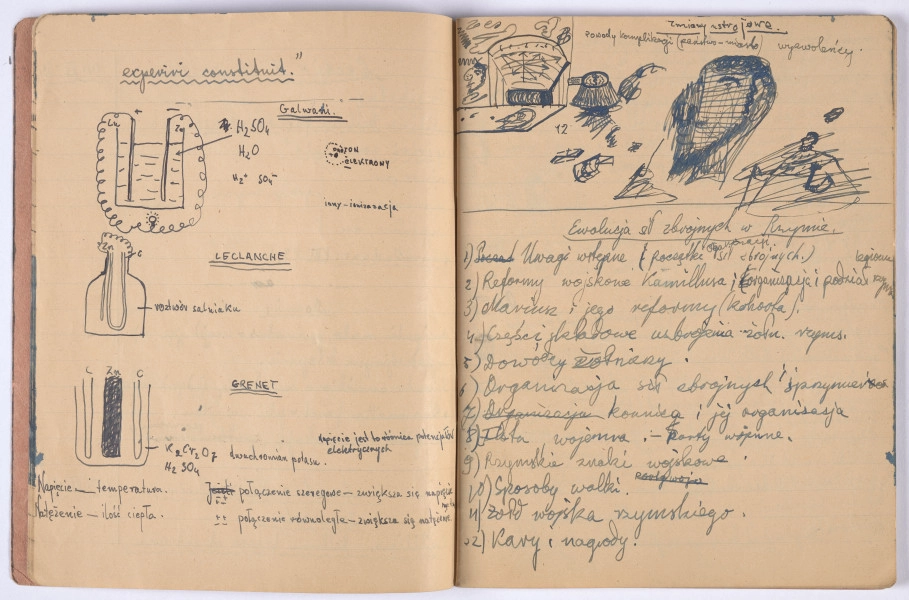 experiri constituit."
Galwani.
Zn
Zn
H₂SO₄
H₂O
H₂⁺ SO₄⁻
JON
ELEKTRONY
jony – jonizacja
Zn C
LECLANCHE
roztwór salmiaku
GRENET
C Zn C
K₂Cr₂O₇ dwuchromian potasu.
H₂SO₄
napięcie jest to różnica potencjałów
elektrycznych
Napięcie — temperatura.
Natężenie — ilość ciepła.
połączenie szeregowe – zwiększa się napięcie
połączenie równoległe – zwiększa się natężenie
Zmiany ustrojowe.
Powody komplikacji (państwo – miasto) wyzwoleńcy.
12
Ewolucja sił zbrojnych w Rzymie.
organizacji
1) Uwagi wstępne (początki sił zbrojnych.)
2) Reformy wojskowe Kamillusa, organizacja i podział
legionu
3) Mariusz i jego reformy (kohorta).
4) Części składowe uzbrojenia żołn. rzyms.
5) Dowódcy żołnierzy.
6) Organizacja sił zbrojnych sprzymierz.
7) Organizacja konnica i jej organizacja
8) Flota wojenna. – Porty wojenne.
9) Rzymskie znaki wojskowe
10) Sposoby walki.
11) Żołd wojska rzymskiego.
12) Kary i nagrody.